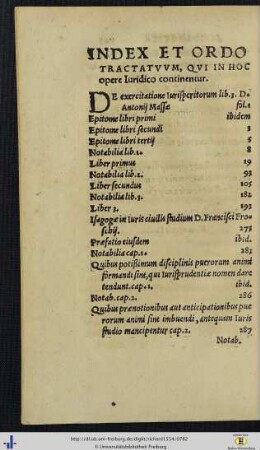 INDEX ET ORDO
TRACTATVVM, QVI IN HOC
opere Iuridico continentur.
DE exercitatione Iurisperitorum lib. 3. D.
Antonij Massæ fol. 1
Epitome libri primi ibidem
Epitome libri secundi 3
Epitome libri tertij 5
Notabilia lib. 1. 8
Liber primus 19
Notabilia lib. 2. 93
Liber secundus 105
Notabilia lib. 3. 184
Liber 3. 193
Isagogæ in Iuris ciuilis studium D. Francisci Fro-
schij. 275
Præfatio eiusdem ibid.
Notabilia cap. 1. 282
Quibus potissimum disciplinis puerorum animi
formandi sint, qui Iurisprudentiæ nomen dare
tendunt. cap. 1. ibid.
Notab. cap. 2. 286
Quibus prænotionibus aut anticipationibus pue
rorum animi sint imbuendi, antequam Iuris
studio mancipentur cap. 2. 287
Notab.
© Universitätsbibliothek Freiburg